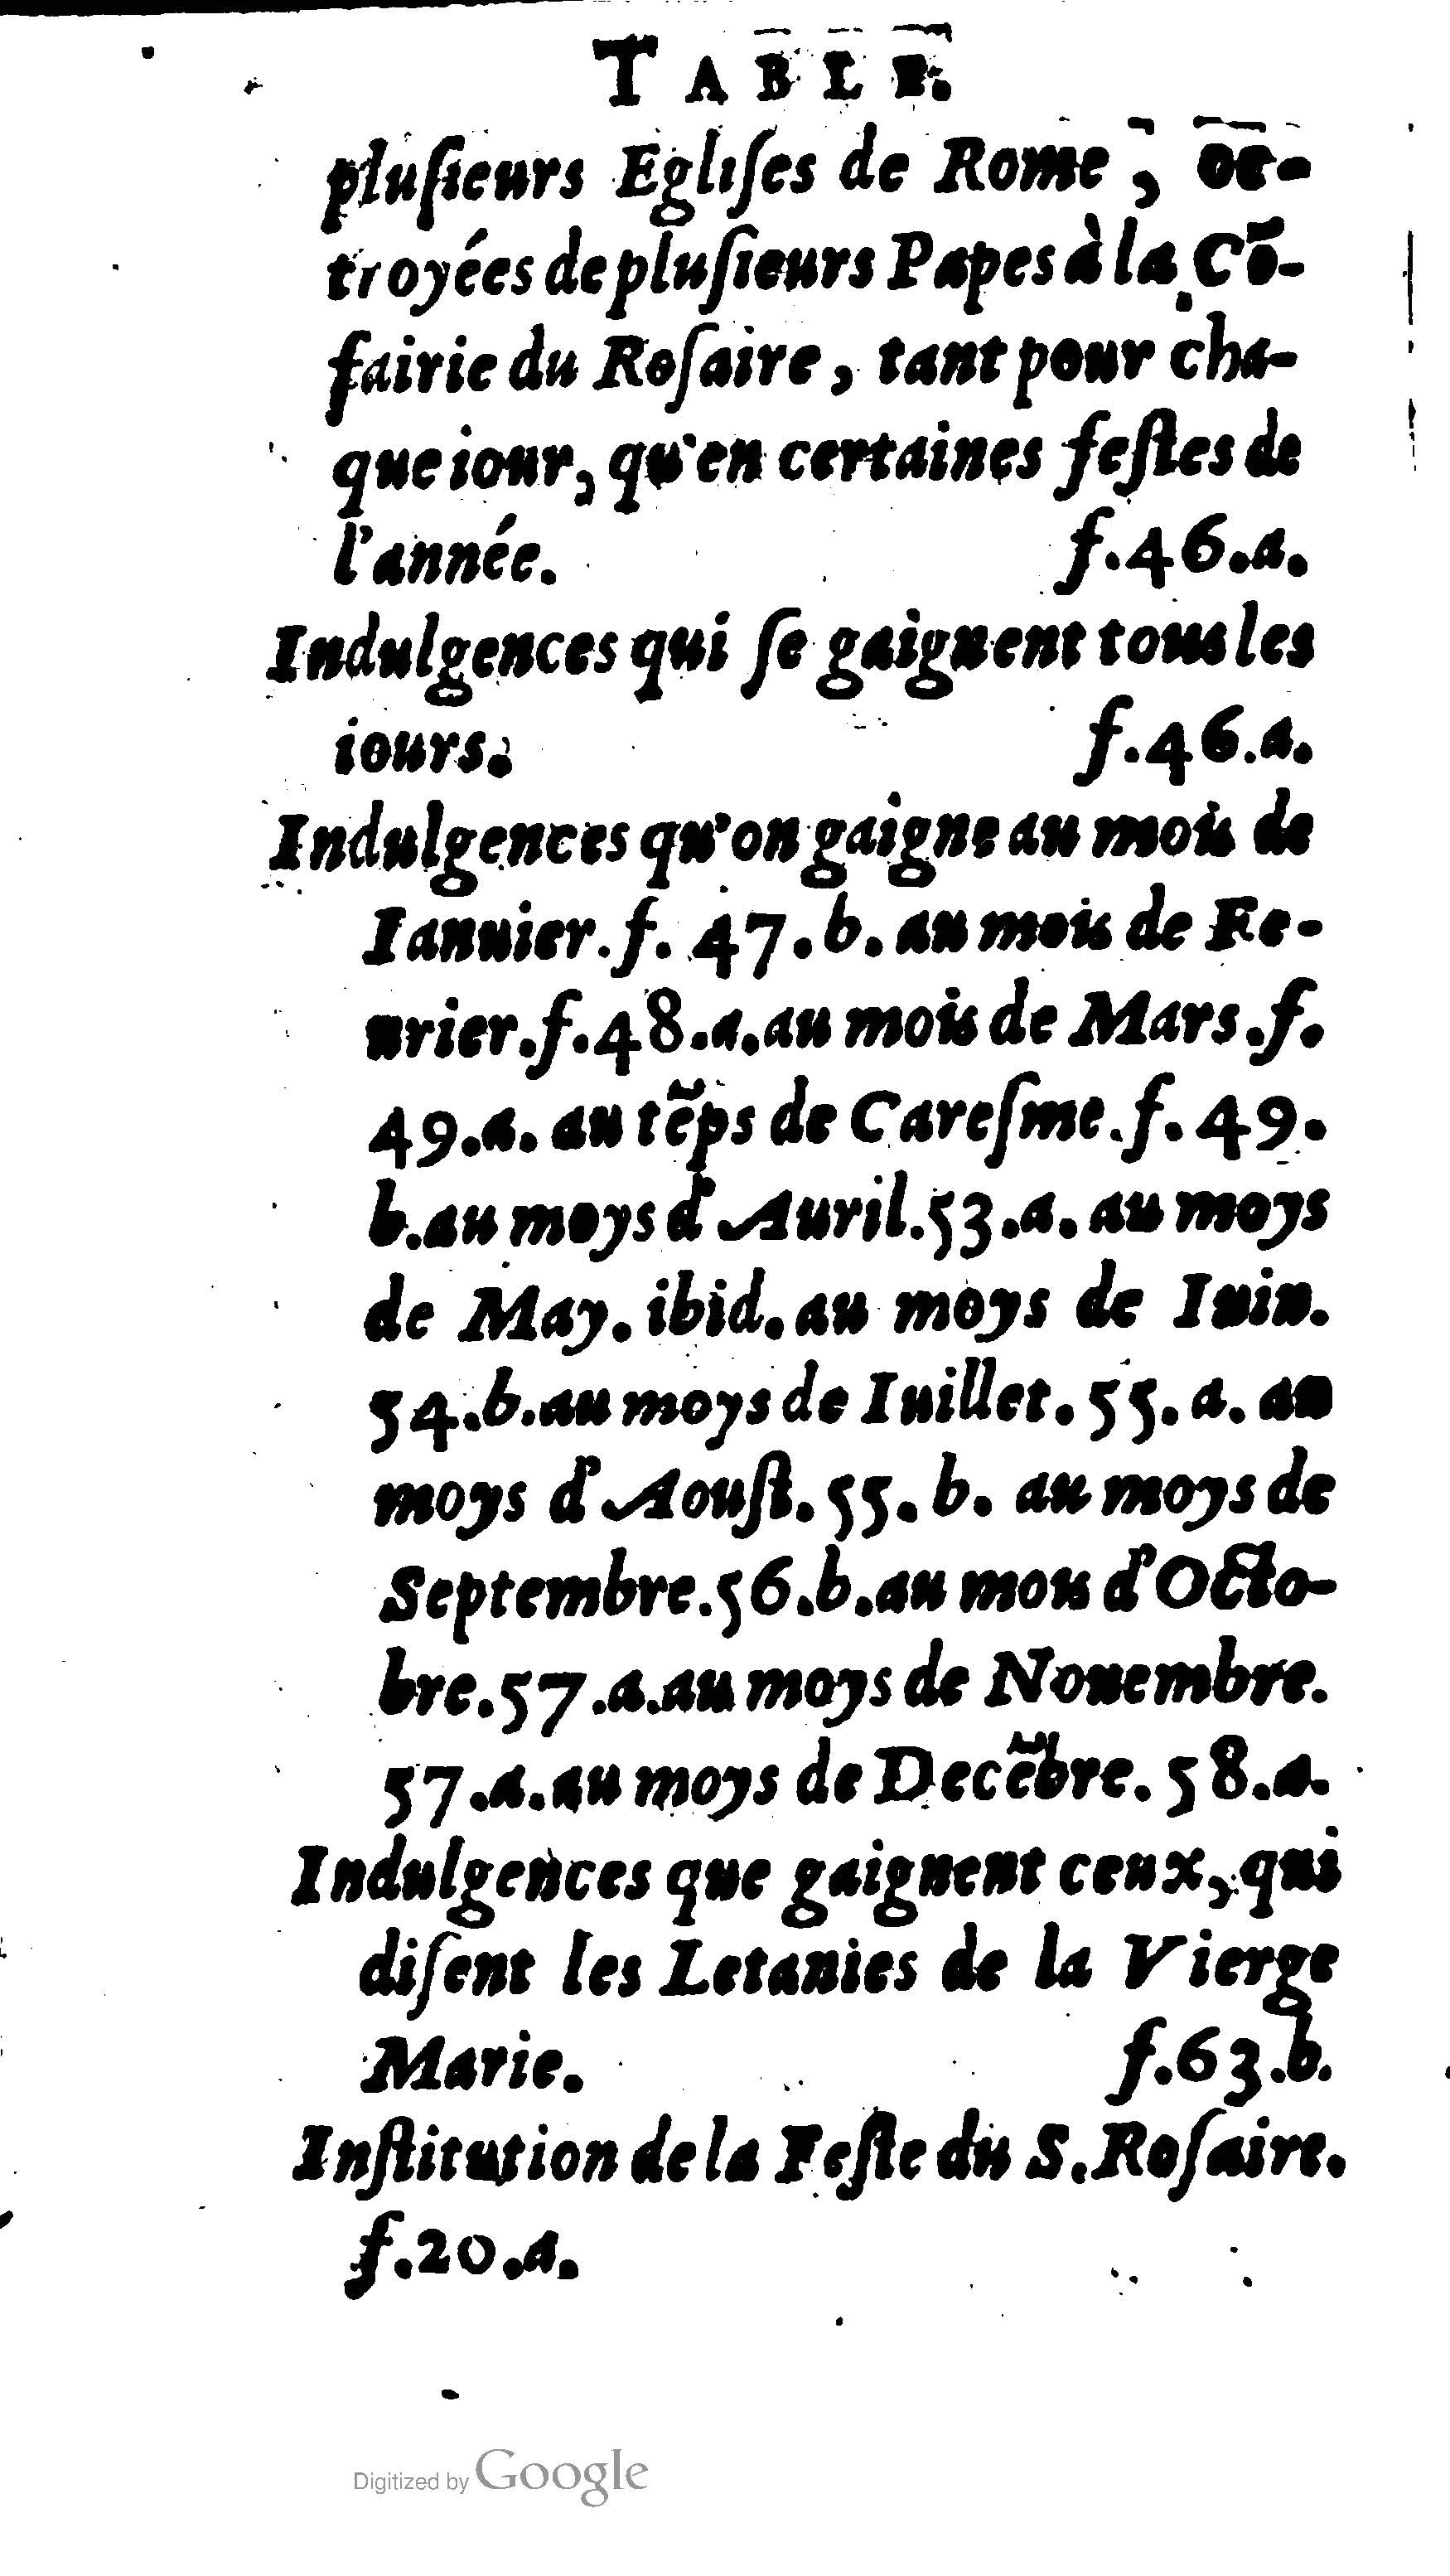 TABLE.
pluſieurs Egliſes de Rome, oc-
troyées de pluſieurs Papes à la Cõ-
fairie du Roſaire, tant pour cha-
que iour, qu'en certaines feſtes de
l'année. f.46.a.
Indulgences qui ſe gaignent tous les
iours. f.46.a.
Indulgences qu'on gaigne au mois de
Ianuier. f. 47. b. au mois de Fe-
urier. f. 48. a. au mois de Mars. f.
49. a. au tẽps de Careſme. f. 49.
b. au moys d'Auril. 53. a. au moys
de May. ibid. au moys de Iuin.
54. b. au moys de Iuillet. 55. a. au
moys d'Aouſt. 55. b. au moys de
Septembre. 56. b. au mois d'Octo-
bre. 57. a. au moys de Nouembre.
57. a. au moys de Decẽbre. 58. a.
Indulgences que gaignent ceux, qui
diſent les Letanies de la Vierge
Marie. f.63.b.
Inſtitution de la Feſte du S. Roſaire.
f.20.a.
Digitized by Google